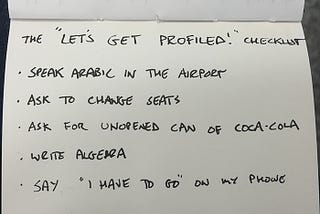 THE "LET'S GET PROFILED!" CHECKLIST
• SPEAK ARABIC IN THE AIRPORT
• ASK TO CHANGE SEATS
• ASK FOR UNOPENED CAN OF COCA-COLA
• WRITE ALGEBRA
• SAY "I HAVE TO GO" ON MY PHONE